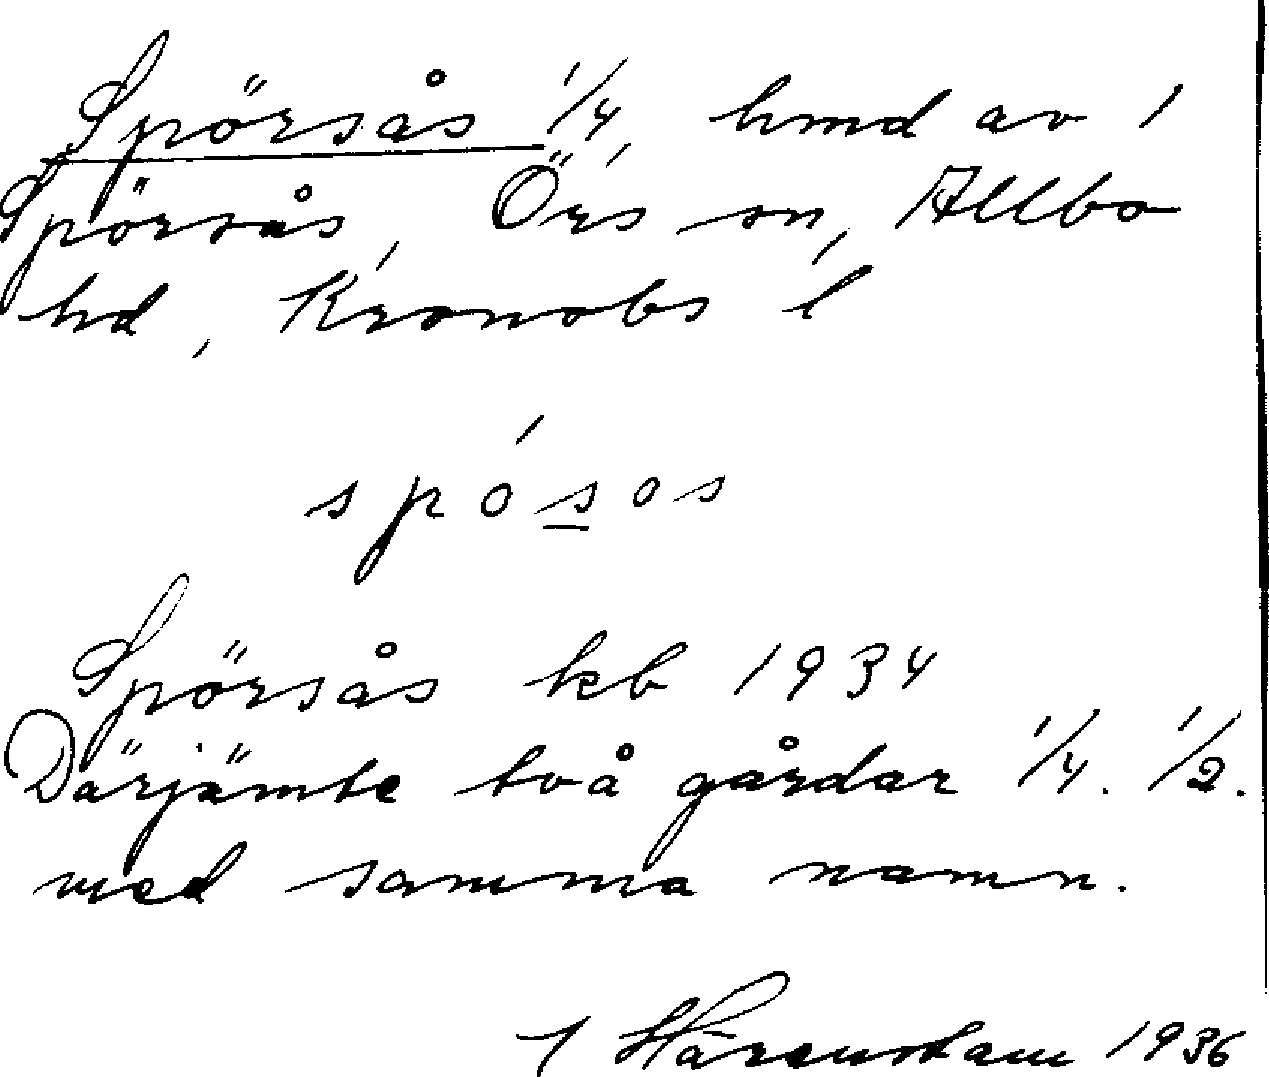 Spörsås 1/4 hmd av 1
Spörsås, Örs sn, Allbo
hd, Kronobs l
spó̱sos
Spörsås kb 1934
Därjämte två gårdar 1/4. 1/2.
med samma namn.
1936